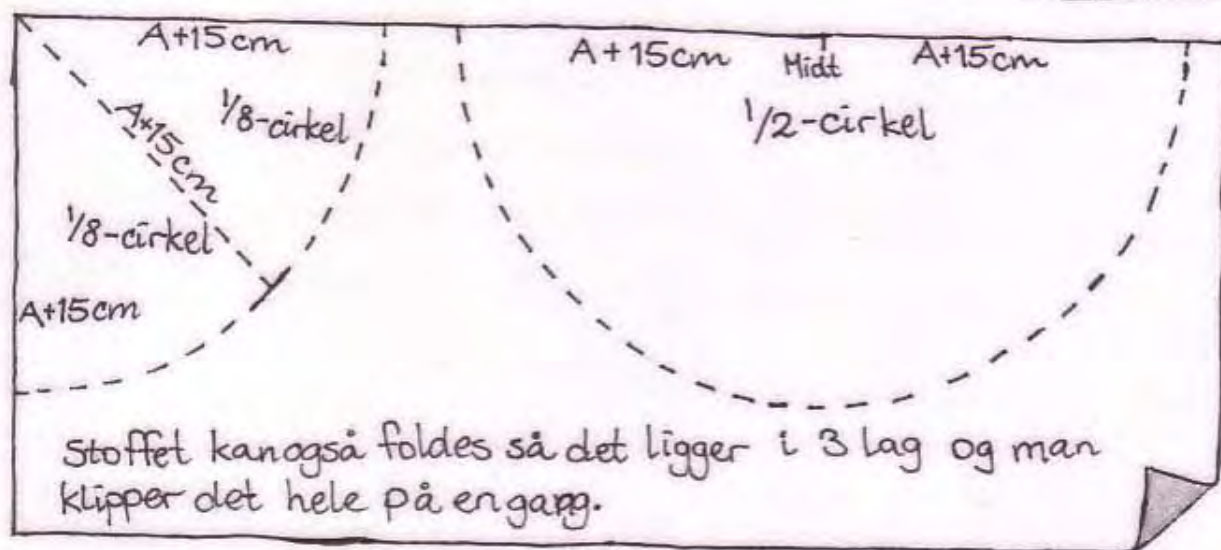 A+15cm
1/8-cirkel
A+15cm
1/8-cirkel
A+15cm
A+15cm Midt A+15cm
1/2-cirkel
Stoffet kan også foldes så det ligger i 3 lag og man
klipper det hele på en gang.